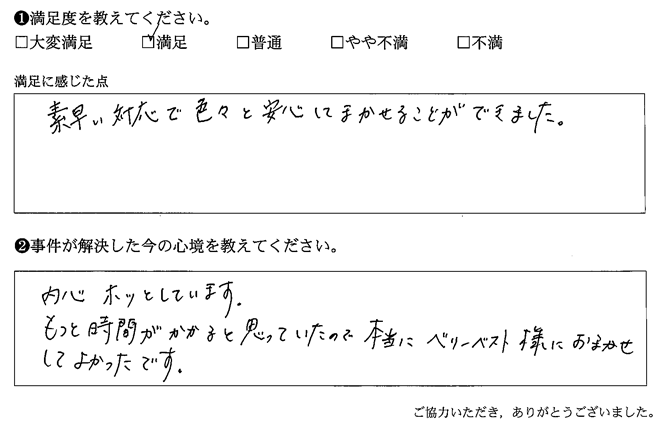 ❶満足度を教えてください。
□大変満足 ☑満足 □普通 □やや不満 □不満
満足に感じた点
素早い対応で色々と安心してまかせることができました。
❷事件が解決した今の心境を教えてください。
内心ホッとしています。
もっと時間がかかると思っていたので本当にベリーベスト様におまかせ
してよかったです。
ご協力いただき，ありがとうございました。